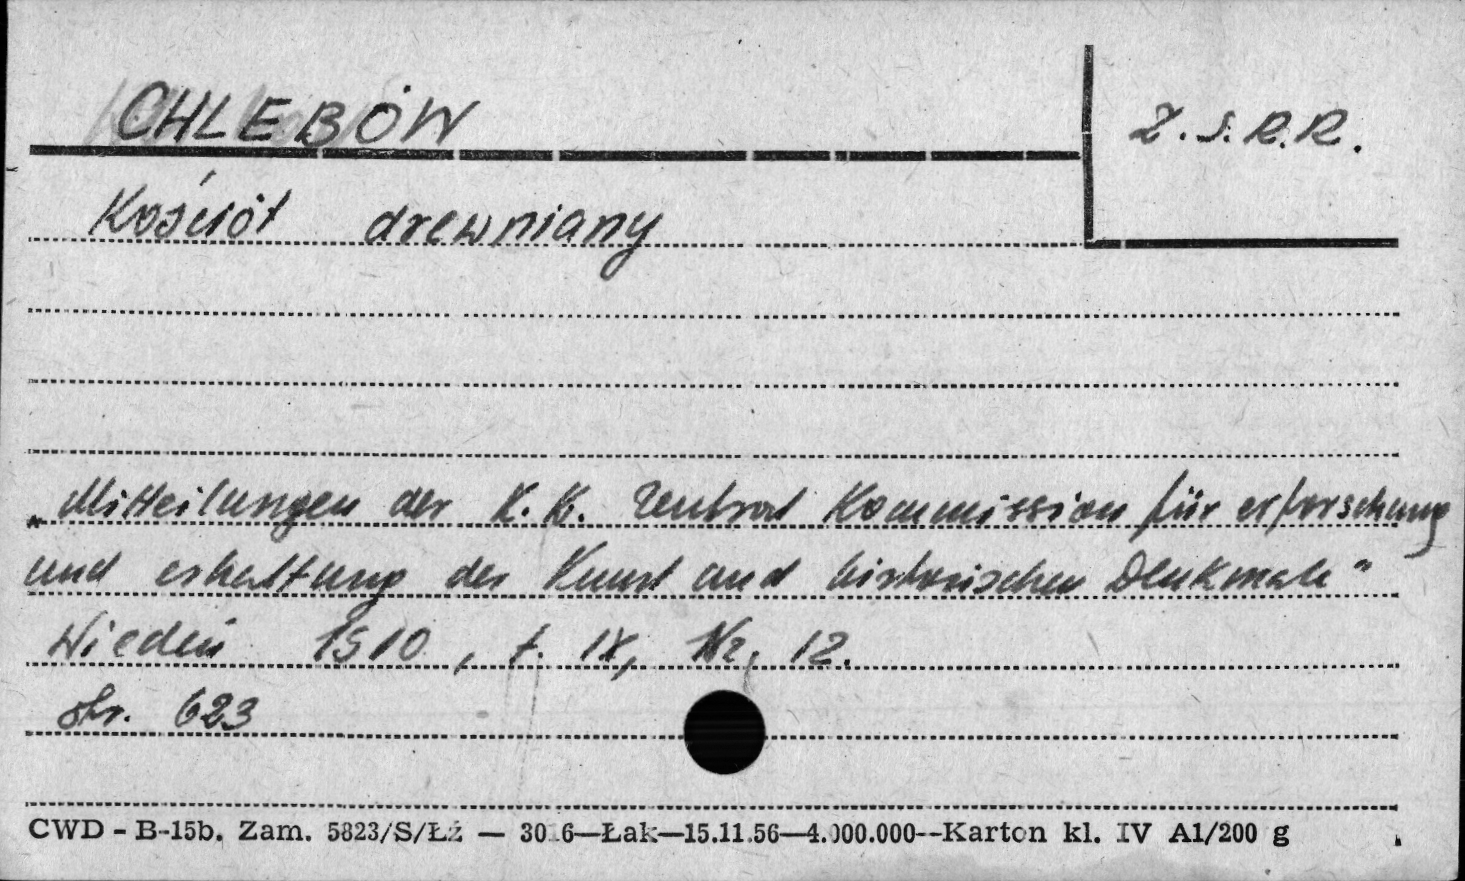 CHLEBÓW
Z.S.R.R.
Kościół drewniany
„Mitteilungen der K.K. Zentral Kommission für erforschung
und erhaltung der Kunst und historischen Denkmale"
Wiedeń 1910, t. IX, Nr. 12.
str. 623
CWD - B-15b. Zam. 5823/S/Łż — 30 6—Łak—15.11.56—4.000.000--Karton kl. IV A1/200 g